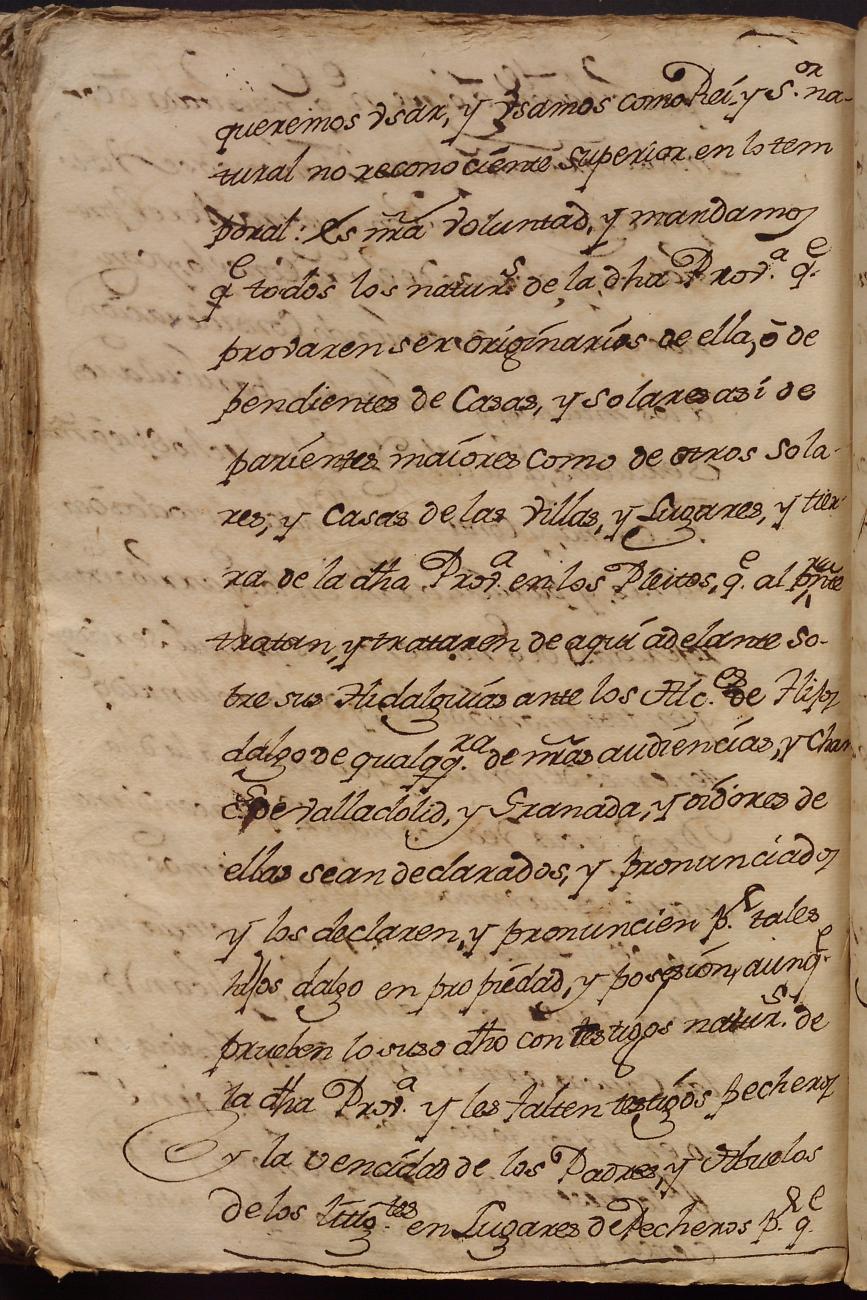 queremos vsar, y vsamos como Rei, y S.or na-
tural no reconociente superior en lo tem
poral: es nrã voluntad, y mandamos
q.e todos los natur.s de la dha Prov.a q.e
provaren ser originarios de ella, ó de
pendientes de Casas, y solares así de
parientes maiores como de otros sola-
res, y Casas de las Villas, y Lugares, y tier
ra de la dha Prov.a en los Pleitos, q.e al pnte
tratan, y trataren de aquí adelante so-
bre sus Hidalguías ante los Alc.es de Hijos
dalgo de qualqq.ra de nrãs audiencias, y Chan
c.s de Valladolid, y Granada, y oidores de
ellas sean declarados, y pronunciados
y los declaren, y pronuncien p.r tales
hijos dalgo en propiedad, y posesión, aunq.e
prueben lo suso dho con testigos natur.s de
la dha Prov.a y les falten testigos pecheros
y la vecindad de los Padres, y Abuelos
de los litig.tes en Lugares de Pecheros p.r q.e